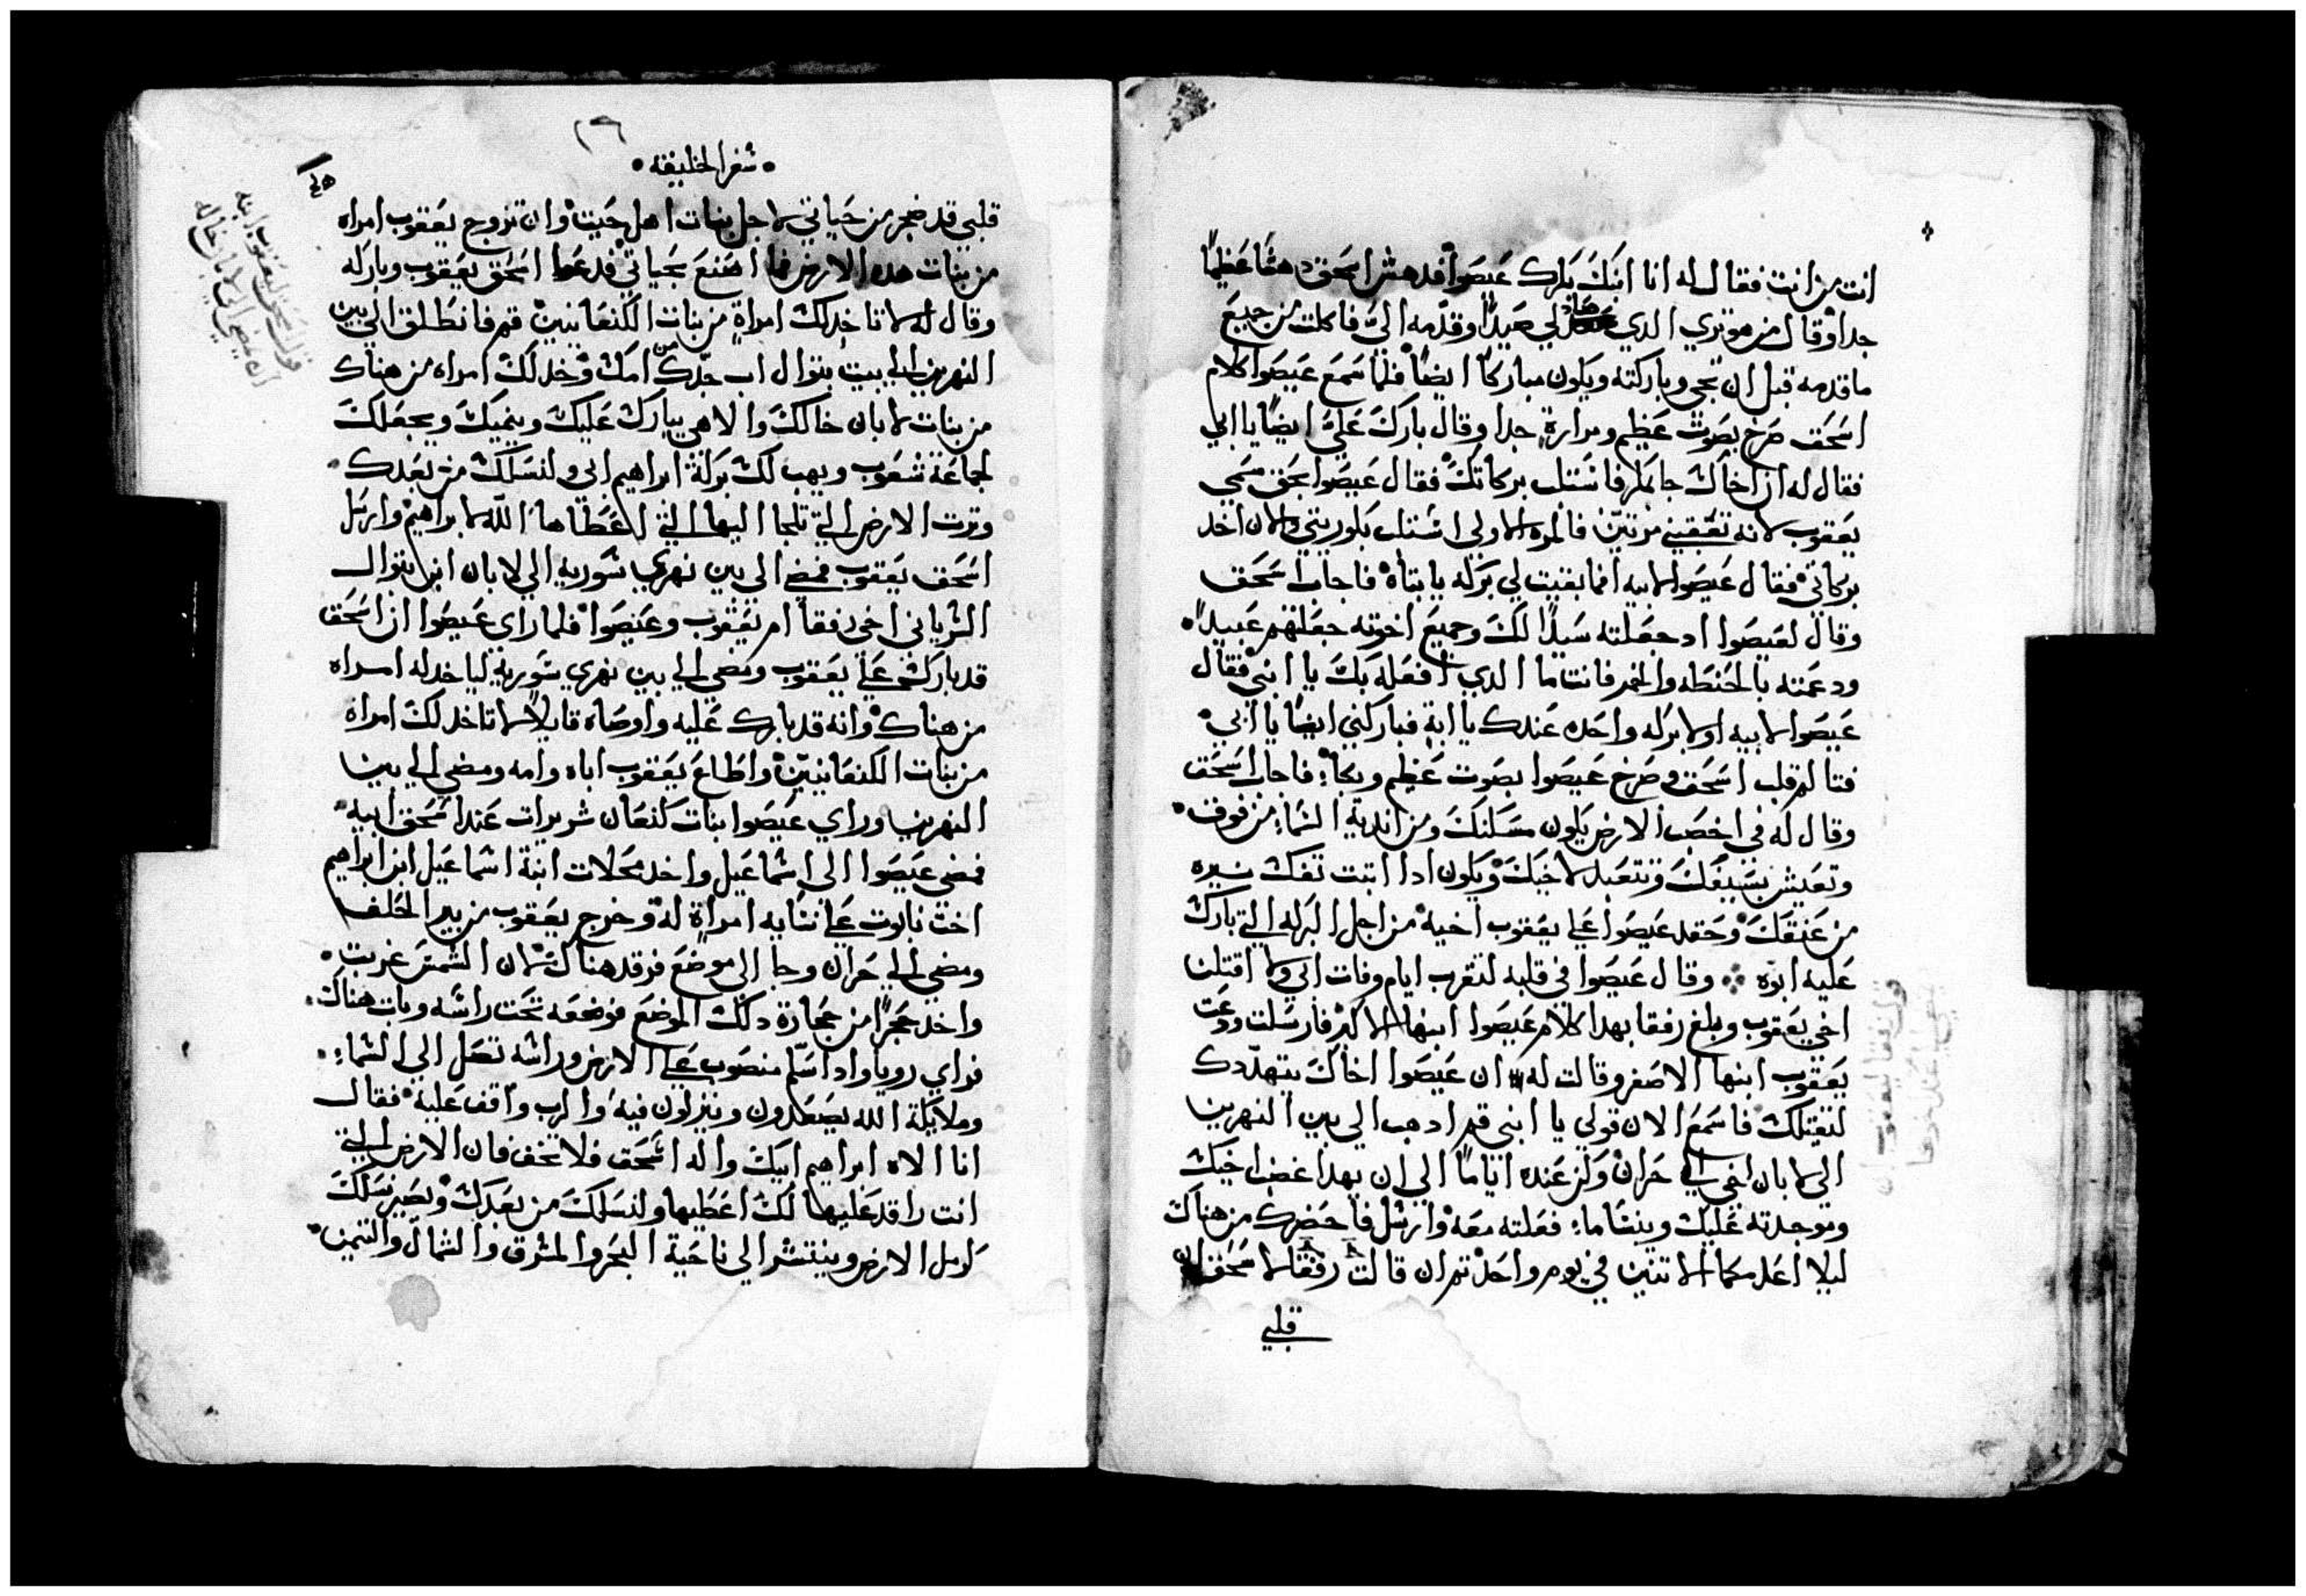 انت من انت فقال له انا ابنك بكرك عيصوا فدهش اسحق دهشا عظيما
جدا وقال من هو تري الدي صاد لي صيدا وقدمه الي فاكلت من جميع
ما قدمه قبل ان تجي وباركته ويكون مباركا ايضا فلما سمع عيصوا كلام
اسحق صرخ بصوت عظيم ومرارة جدا وقال بارك علي ايضا يا ابي
فقال له ان اخاك جا بمكر فاستلب بركاتك فقال عيصوا بحق سمي
يعقوب لانه تعقبني مرتين فالمره الاولي استلب بكوريتي والان اخد
بركاتي فقال عيصوا لابيه اما بقيت لي بركه يا بتاه فاجاب اسحق
وقال لعيصوا اد جعلته سيدا لك وجميع اخوته جعلتهم عبيدا
ودعمته بالحنطه والخمر فانت ما الدي افعله بك يا ابني فقال
عيصوا لابيه اولا بركه واحده عندك يا ابة فباركني ايضا يا ابي
فتالم قلب اسحق وصرخ عيصوا بصوت عظيم وبكا فاجاب اسحق
وقال له في اخصب الارض يكون مسكنك ومن اندية السما من فوق
وتعيش بسيفك وتتعبد لاخيك ويكون ادا اتيت تفك نيره
من عنقك وحقد عيصوا علي يعقوب اخيه من اجل البركه التي بارك
عليه ابوه وقال عيصوا في قلبه لتقرب ايام وفات ابي ولا اقتلن
اخي يعقوب وبلغ رفقا بهدا كلام عيصوا ابنها الاكبر فارسلت ودعت
يعقوب ابنها الاصغر وقالت له ان عيصوا اخاك يتهددك
لتقتلك فاسمع الان قولي يا ابني قم ادهب الي بين النهرين
الي لابان اخي الي حران وكن عنده اياما الي ان يهدا غضب اخيك
وموجدته عليك وينسا ما فعلته معه وارسل فاحضرك من هناك
ليلا اعدمكما الاتنين في يوم واحد تم ان قالت رفقا لاسحق ان
قلبي
٢٦
سفر الخليقه
قلبي قد ضجر من حياتي لاجل بنات اهل حيت وان تزوج يعقوب امراه
من بنات هده الارض فما اصنع بحياتي فدعا اسحق يعقوب وباركه
وقال له لا تاخد لك امراة من بنات الكنعانيين قم فانطلق الي بين
النهرين الي بيت بتوال اب جدك من امك وخد لك امراه من هناك
من بنات لابان خالك والاهي يبارك عليك وينميك ويجعلك
لجماعة شعوب ويهب لك بركة ابراهيم ابي ولنسلك من بعدك
وترت الارض التي تلجا اليها التي اعطاها الله لابراهيم وارسل
اسحق يعقوب فمضي الي بين نهري سورية الي لابان ابن بتوال
السرياني اخي رفقا ام يعقوب وعيصوا فلما راي عيصوا ان اسحق
قد بارك علي يعقوب ومضي الي بين نهري سورية لياخد له امراه
من هناك وانه قد بارك عليه واوصاه قايلا لا تاخد لك امراه
من بنات الكنعانيين واطاع يعقوب اباه وامه ومضي الي بين
النهرين وراي عيصوا بنات كنعان شريرات عند اسحق ابيه
فمضي عيصوا الي اسماعيل واخد محلات ابنة اسماعيل ابن ابراهيم
اخت نابوت علي نسايه امراة له وخرج يعقوب من بير الحلف
ومضي الي حران وجا الي موضع فرقد هناك لان الشمس غربت
واخد حجرا من حجارة دلك الموضع فوضعه تحت راسه وبات هناك
فراي رويا وادا سلم منصوب علي الارض وراسه تصل الي السما
وملايكة الله يصعدون وينزلون فيه والرب واقف عليه فقال
انا الاه ابراهيم ابيك واله اسحق فلا تخف فان الارض التي
انت راقد عليها لك اعطيها ولنسلك من بعدك ويصير نسلك
كرمل الارض وينتشر الي ناحية البحر والمشرق والشمال والتيمن